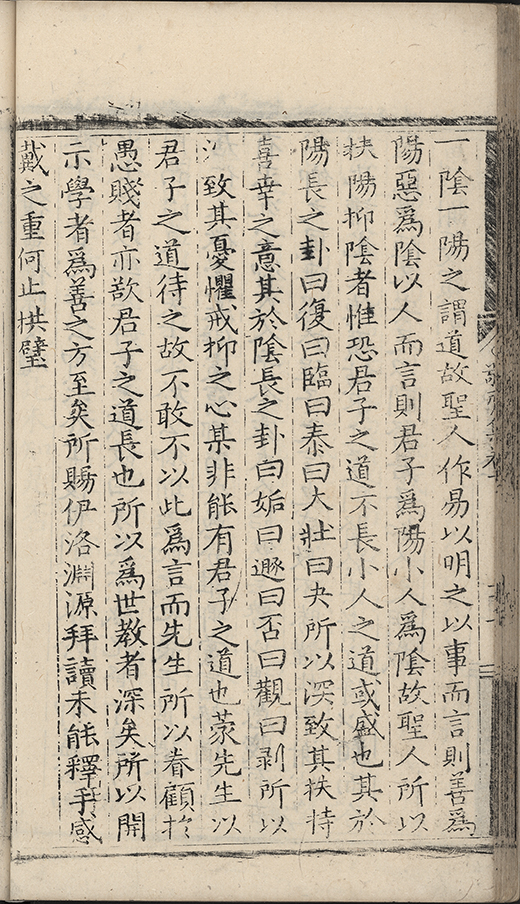 一陰一陽之謂道故聖人作易以明之以事而言則善爲
陽惡爲陰以人而言則君子爲陽小人爲陰故聖人所以
扶陽抑陰者惟恐君子之道不長小人之道或盛也其於
陽長之卦曰復曰臨曰泰曰大壯曰夬所以深致其扶持
喜幸之意其於陰長之卦曰姤曰遯曰否曰觀曰剥所以
致其憂懼戒抑之心某非能有君子之道也蒙先生以
君子之道待之故不敢不以此爲言而先生所以眷顧於
愚賤者亦欲君子之道長也所以爲世教者深矣所以開
示學者爲善之方至矣所賜伊洛淵源拜讀未能釋手感
戴之重何止拱璧